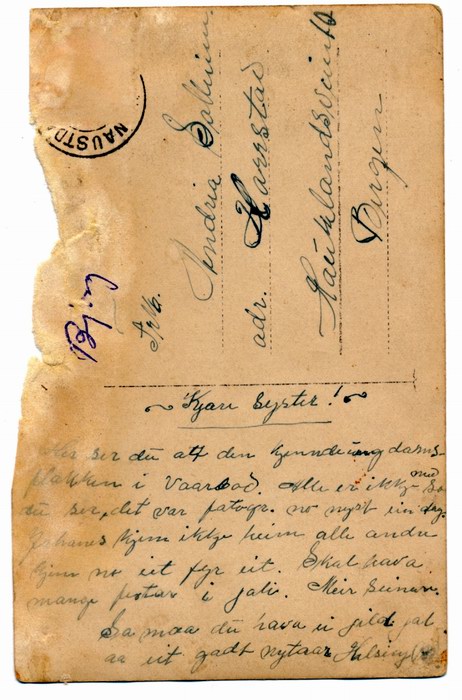 NAUSTD
Frk.
Andria Solheim
adr. Harrstad
Haukelandsveien
Bergen
Kjære syster!
Her ser du att den kjende ungdams-
flokken i Vaarbod. Alle er ikkje med so
du ser, det var fatogr. no nyst ein dag.
Johanes kjem ikkje heim alle andre
kjem no eit fyr eit. Skal hava
mange festar i joli. Meir seinare.
So maa du hava ei gild jol
aa eit godt nytaar. Helsing